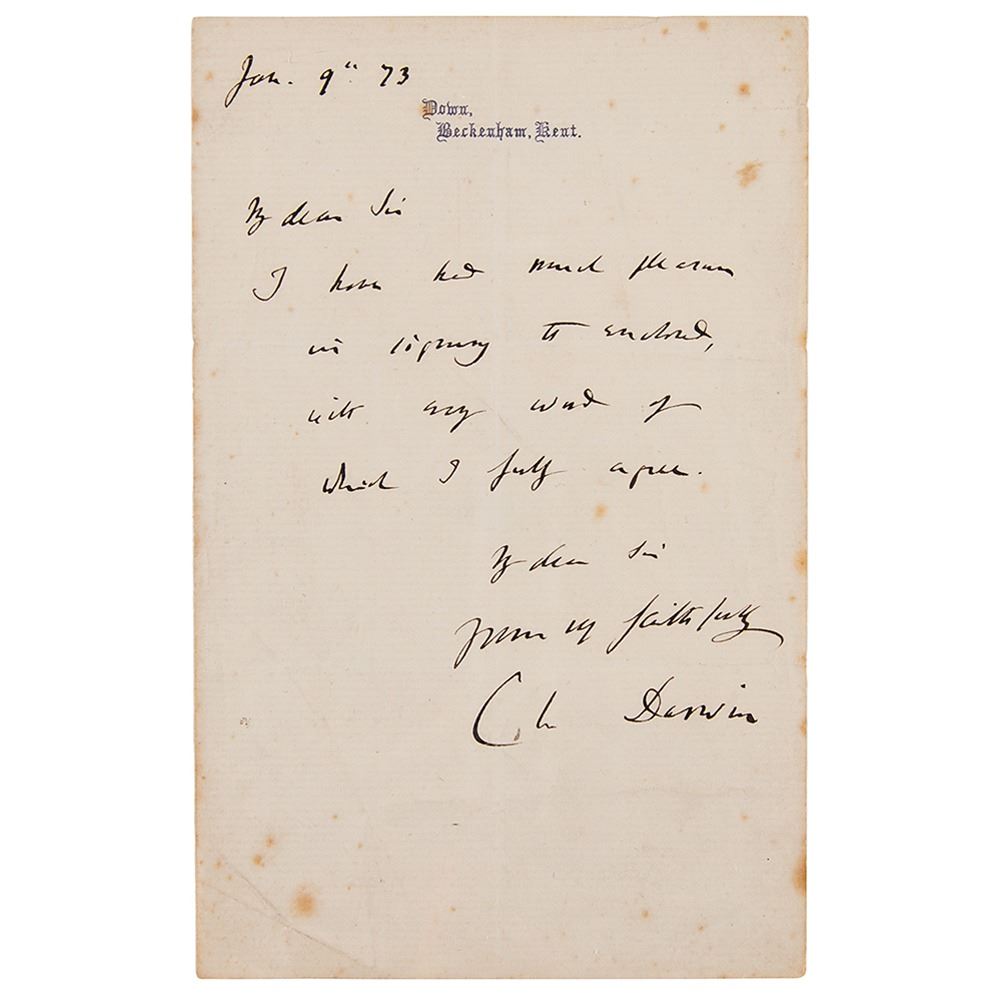 Jan. 9th 73
Down,
Beckenham, Kent.
My dear Sir
I have had much pleasure
in signing the enclosed,
with every word of
which I fully agree.
My dear Sir
yours very faithfully
Ch Darwin